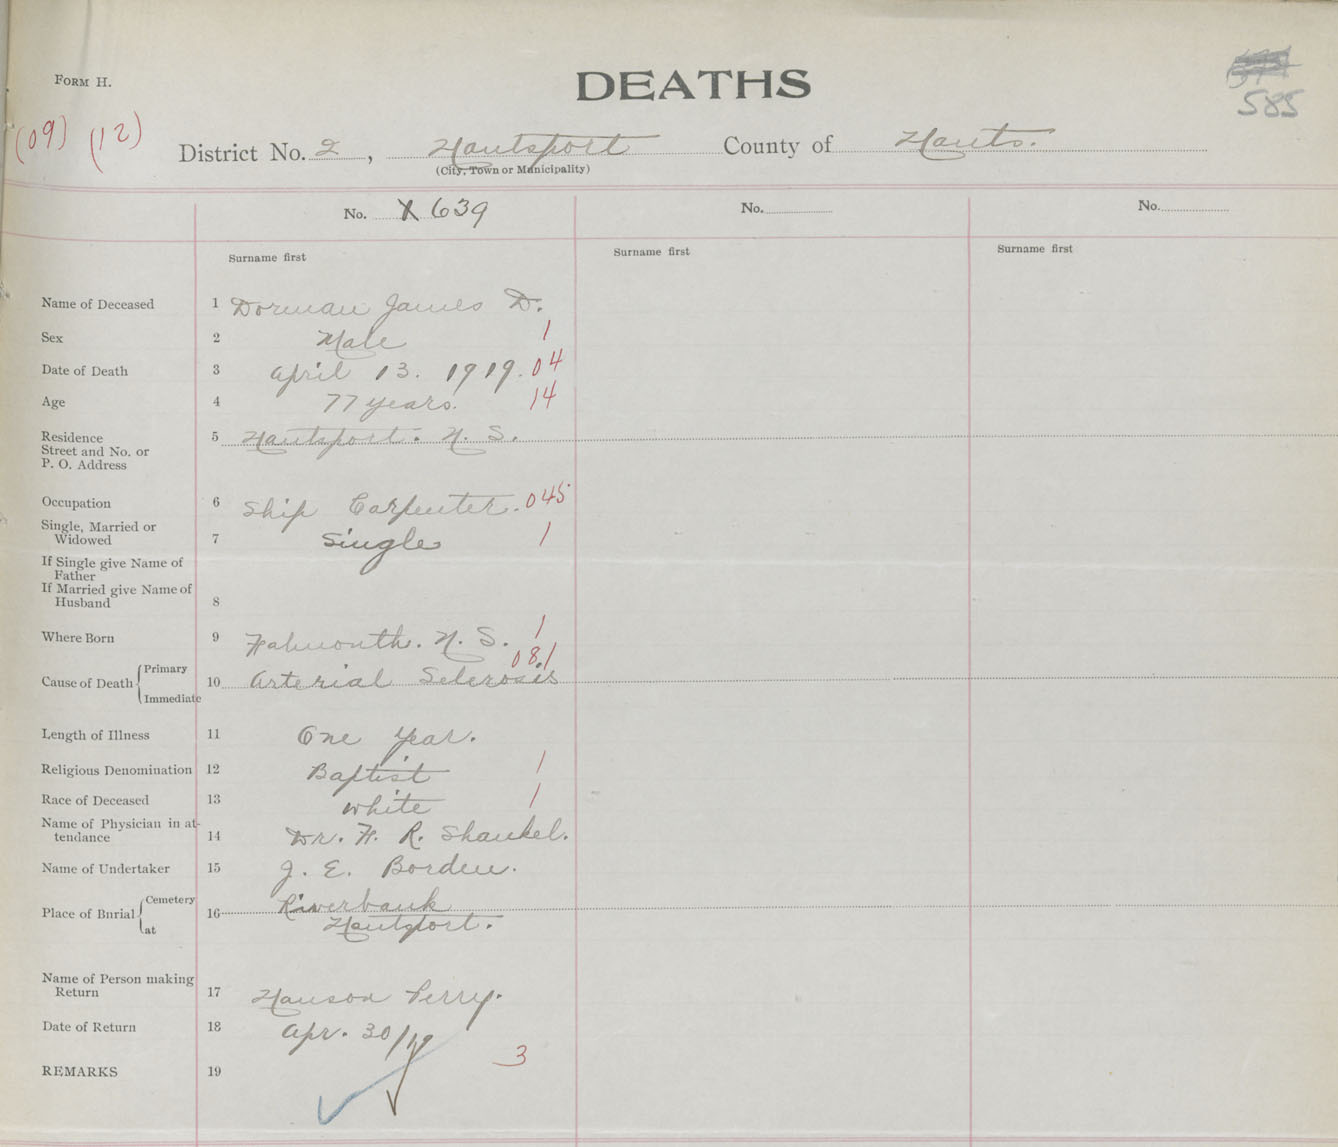 Form H.
DEATHS
585
(09) (12)
District No. 2, Hantsport County of Hants.
(City, Town or Municipality)
No. X 639 No. No.
Surname first Surname first Surname first
Name of Deceased 1 Dorman James D.
Sex 2 Male 1
Date of Death 3 April 13. 1919. 04
Age 4 77 years. 14
Residence 5 Hantsport. N. S.
Street and No. or
P. O. Address
Occupation 6 Ship Carpenter. 045
Single, Married or
Widowed 7 Single 1
If Single give Name of
Father
If Married give Name of
Husband 8
Where Born 9 Falmouth. N. S. 1
Cause of Death { Primary Immediate 10 Arterial Sclerosis 081
Length of Illness 11 One year.
Religious Denomination 12 Baptist 1
Race of Deceased 13 White 1
Name of Physician in at-
tendance 14 Dr. F. R. Shankel.
Name of Undertaker 15 J. E. Borden.
Place of Burial { Cemetery at 16 Riverbank
Hantsport.
Name of Person making
Return 17 Hanson Perry.
Date of Return 18 Apr. 30/19
3
REMARKS 19